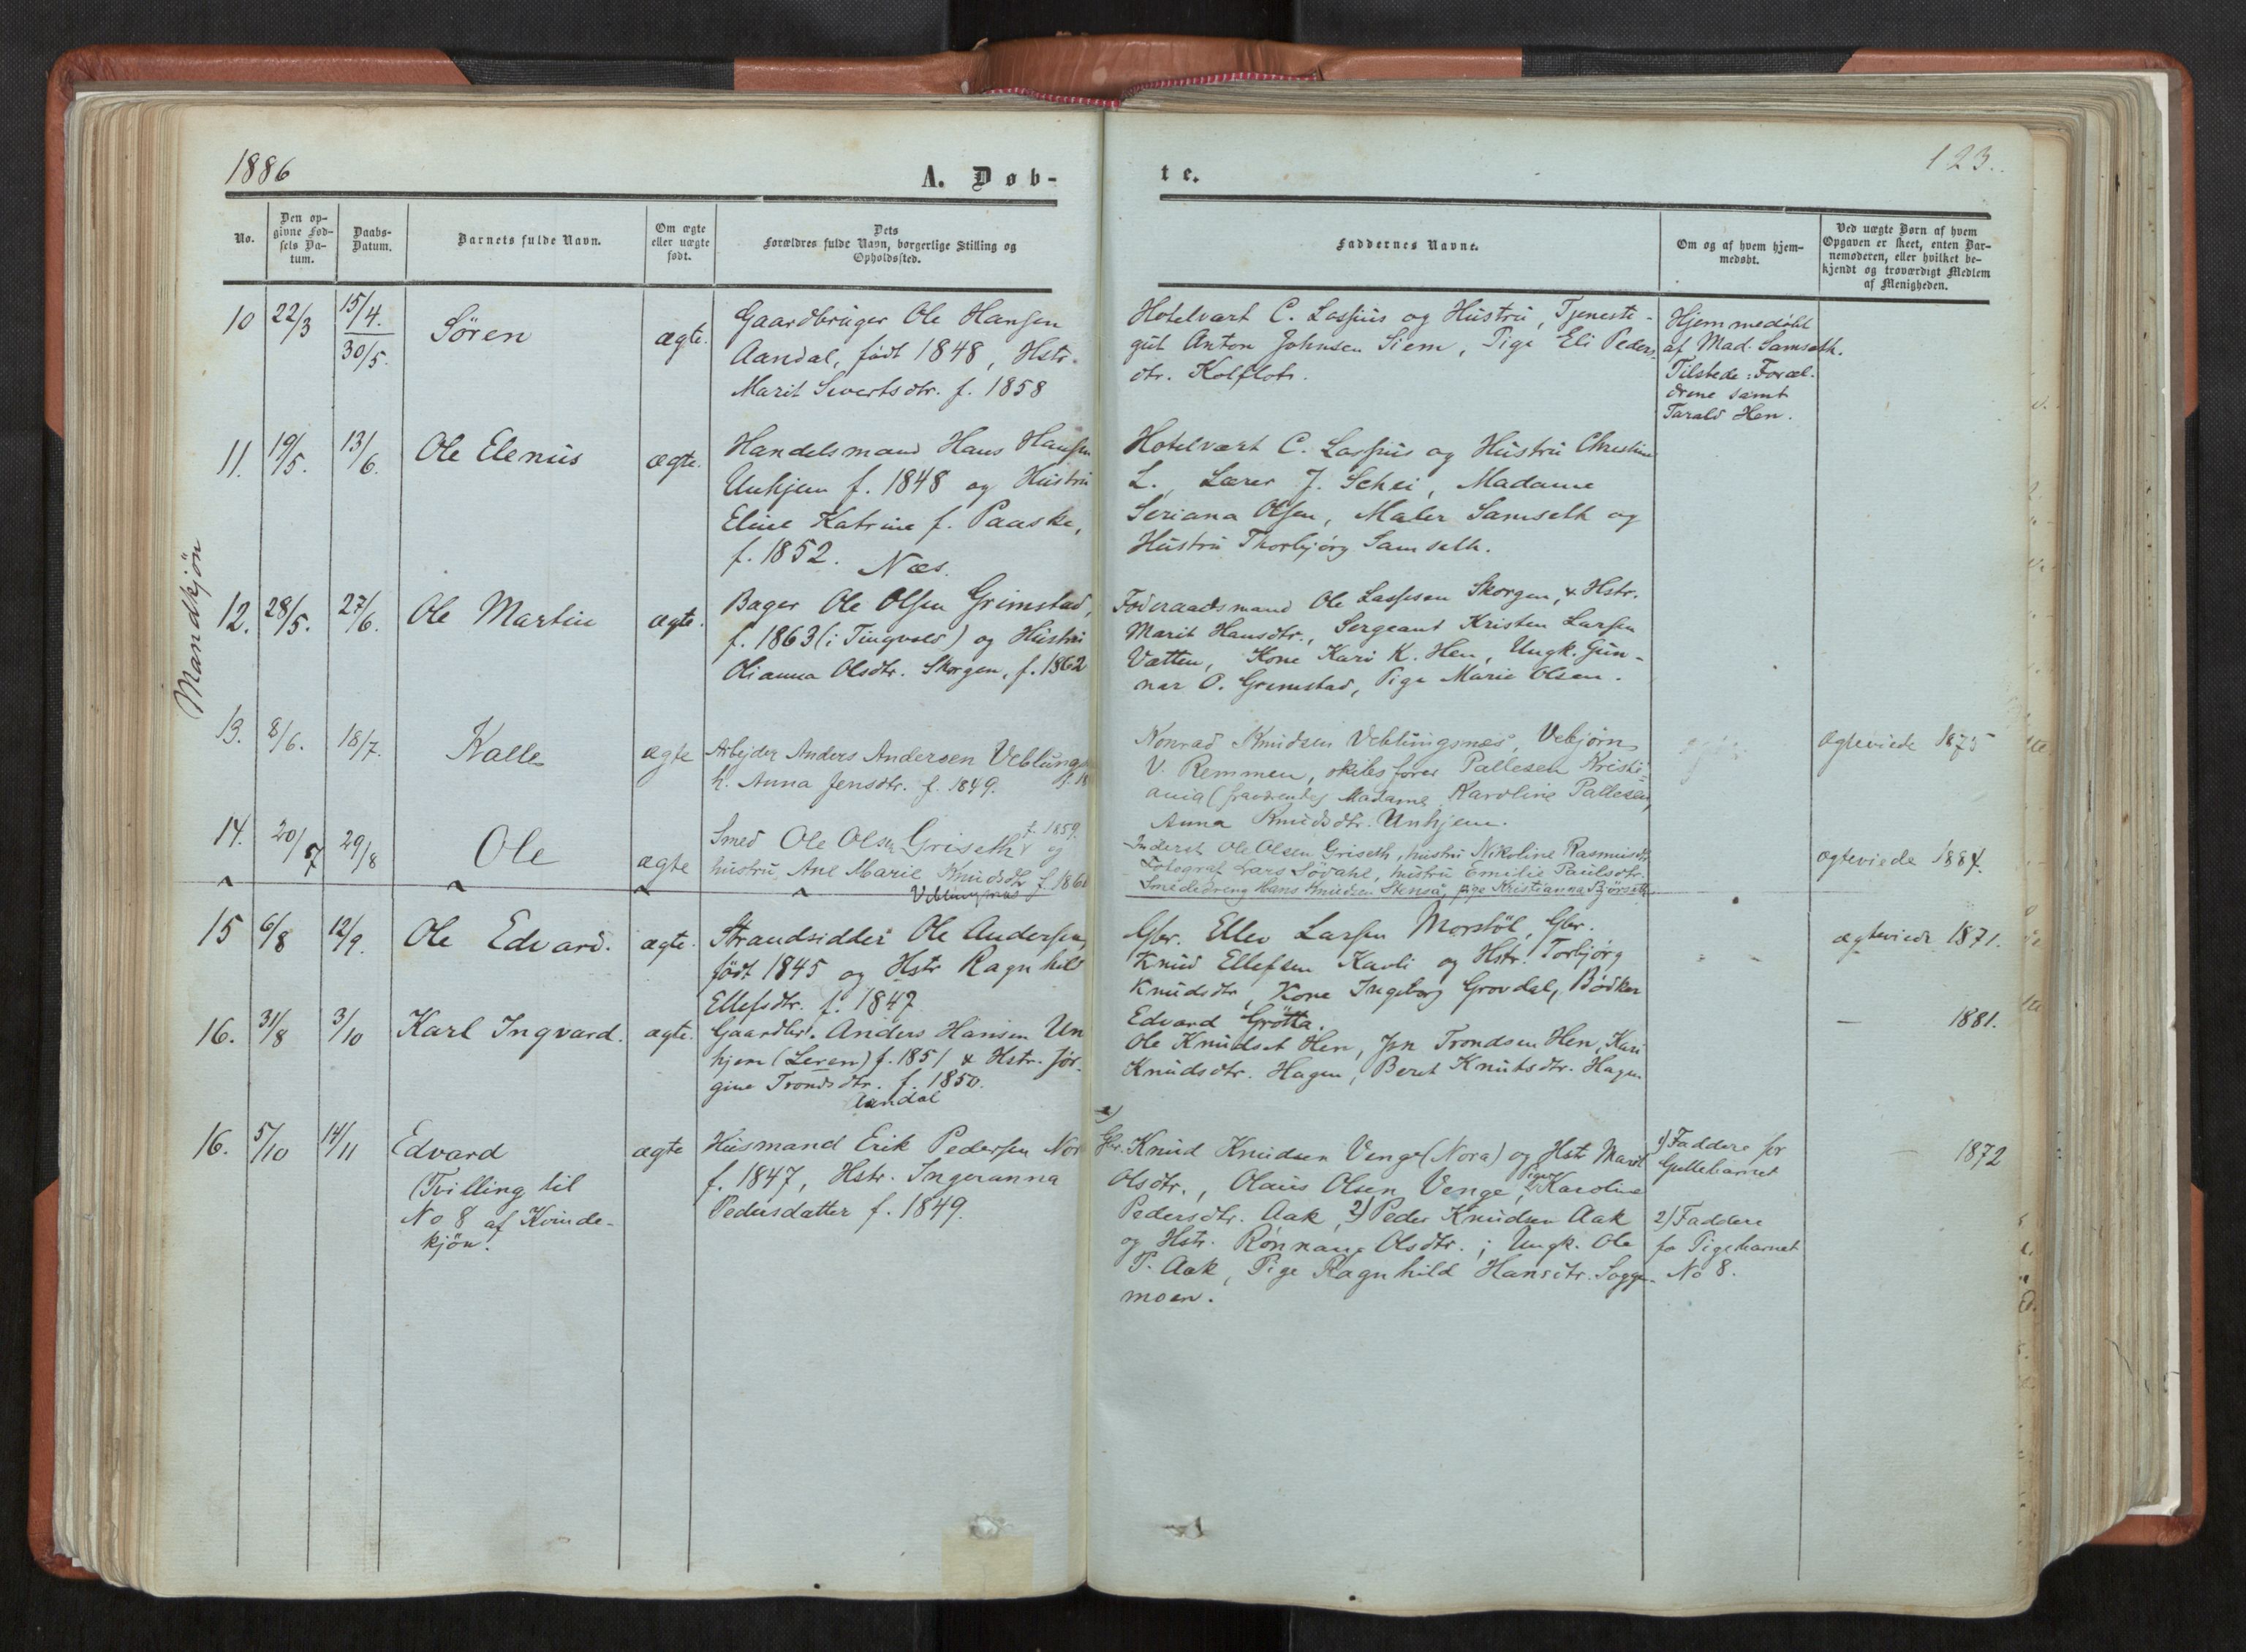 1886
A. Døb-
te.
123.
No.
Den op-
givne Fød-
sels Da-
tum.
Daabs-
Datum.
Barnets fulde Navn.
Om ægte
eller uægte
født.
Dets
Forældres fulde Navn, borgerlige Stilling og
Opholdssted.
Faddernes Navne.
Om og af hvem hjem-
medøbt.
Ved uægte Børn af hvem
Opgaven er skeet, enten Bar-
nemoderen, eller hvilket be-
kjendt og troværdigt Medlem
af Menigheden.
Mandkjøn
10 22/3 15/4. 30/5. Søren ægte.
Gaardbruger Ole Hansen
Aandal, født 1848, Hstr.
Marit Sivertsdtr. f. 1858
Hotelvært C. Lassius og Hustru, Tjeneste-
gut Anton Johnsen Siem, Pige Eli Peders-
dtr. Kolflot.
Hjemmedøbt
af Mad. Samseth.
Tilstede: Foræl-
drene samt
Tarald Hen.
11. 19/5. 13/6. Ole Elenius ægte.
Handelsmand Hans Hansen
Unhjem f. 1848 og Hustru
Eline Katrine f. Paaske,
f. 1852. Næs.
Hotelvært C. Lassius og Hustru Christine
L., Lærer J. Schei, Madame
Seriana Olsen, Maler Samseth og
Hustru Thorbjørg Samseth.
12. 28/5. 27/6. Ole Martin ægte.
Bager Ole Olsen Grimstad,
f. 1863 (i Tingvold) og Hustru
Olianna Olsdtr. Skorgen, f. 1862
Føderaadsmand Ole Lassesen Skorgen, & Hstr.
Marit Hansdtr., Sergeant Kristen Larsen
Vatten, Kone Kari K. Hen, Ungk. Gun-
nar O. Grimstad, Pige Marie Olsen.
13. 8/6. 18/7. Kalle ægte
Arbejder Anders Andersen Veblungs
h. Anna Jensdtr. f. 1849.
Konrad Knudsen Veblungsnæs, Vebjørn
V. Remmen, skibsfører Pallesen Kristi-
ania (fraværende) Madame Karoline Pallesen,
Anna Knudsdtr. Unhjem.
Ægteviede 1875
14. 20/7 29/8 Ole ægte
Smed Ole Olsen Griseth f. 1859. og
hustru Ane Marie Knudsdtr f. 186
Veblungsnæs
Inderst Ole Olsen Griseth, hustru Nikoline Rasmusdtr.
Fotograf Lars Søvahl, hustru Emilie Paulsdtr.
Smededreng Hans Knudsen Stenså, pige Kristianna Bjørseth
ægteviede 1884.
15 6/8 12/9. Ole Edvard. ægte.
Strandsidder Ole Andersen,
født 1845 og Hstr Ragnhild
Ellefsdtr. f. 1847
Gbr. Ellev Larsen Morstöl, Gbr.
Knud Ellefsen Kavli og Hstr. Torbjørg
Knudsdtr, Kone Ingeborg Grovdal, Bødker
Edvard Grötta.
ægteviede 1871.
16. 31/8 3/10 Karl Ingvard. ægte.
Gaardbr. Anders Hansen Un
hjem (Leren) f. 1851 & Hstr. Jør-
gine Trondsdtr. f. 1850.
Aandal
Ole Knudset Hen, Jon Trondsen Hen, Kari
Knudsdtr. Hagen, Beret Knutsdtr. Hagen
— 1881.
16. 5/10 14/11 Edvard ægte
(Tvilling til
No 8 af Kvinde-
kjøn.
Husmand Erik Pedersen Nor
f. 1847, Hstr. Ingeranna
Pedersdatter f. 1849.
1)
Gbr. Knud Knudsen Venge (Nora) og Hstr Marit
Olsdtr., Olaus Olsen Venge, Pige Karoline
Pedersdtr. Aak, 2) Peder Knudsen Aak
og Hstr. Rønnaug Olsdtr.; Ungk. Ole
P. Aak, Pige Ragnhild Hansdtr. Sogge-
moen.
1) Faddere for
Guttebarnet
2) Faddere
for Pigebarnet
No 8.
— 1872